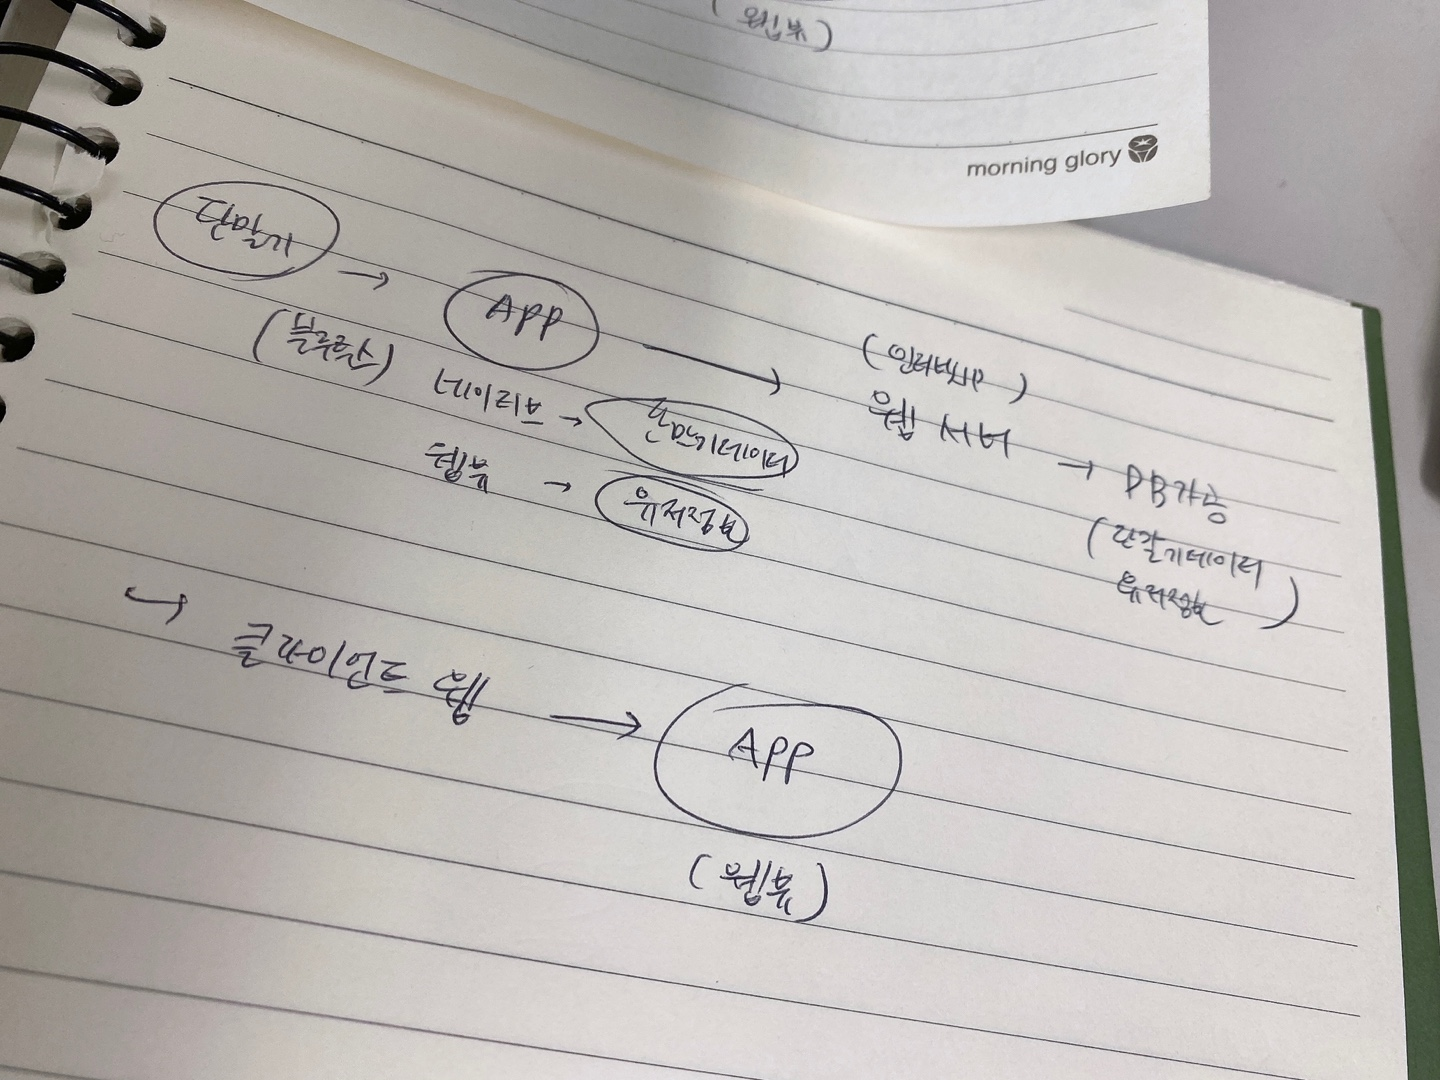 (웹뷰)
morning glory
단말기 → APP →
(블루투스)
네이티브 → 단말기데이터
웹뷰 → 유저정보
웹 서버 → DB가공
(단말기데이터
유저정보)
↪ 클라이언트 웹 → APP
(웹뷰)